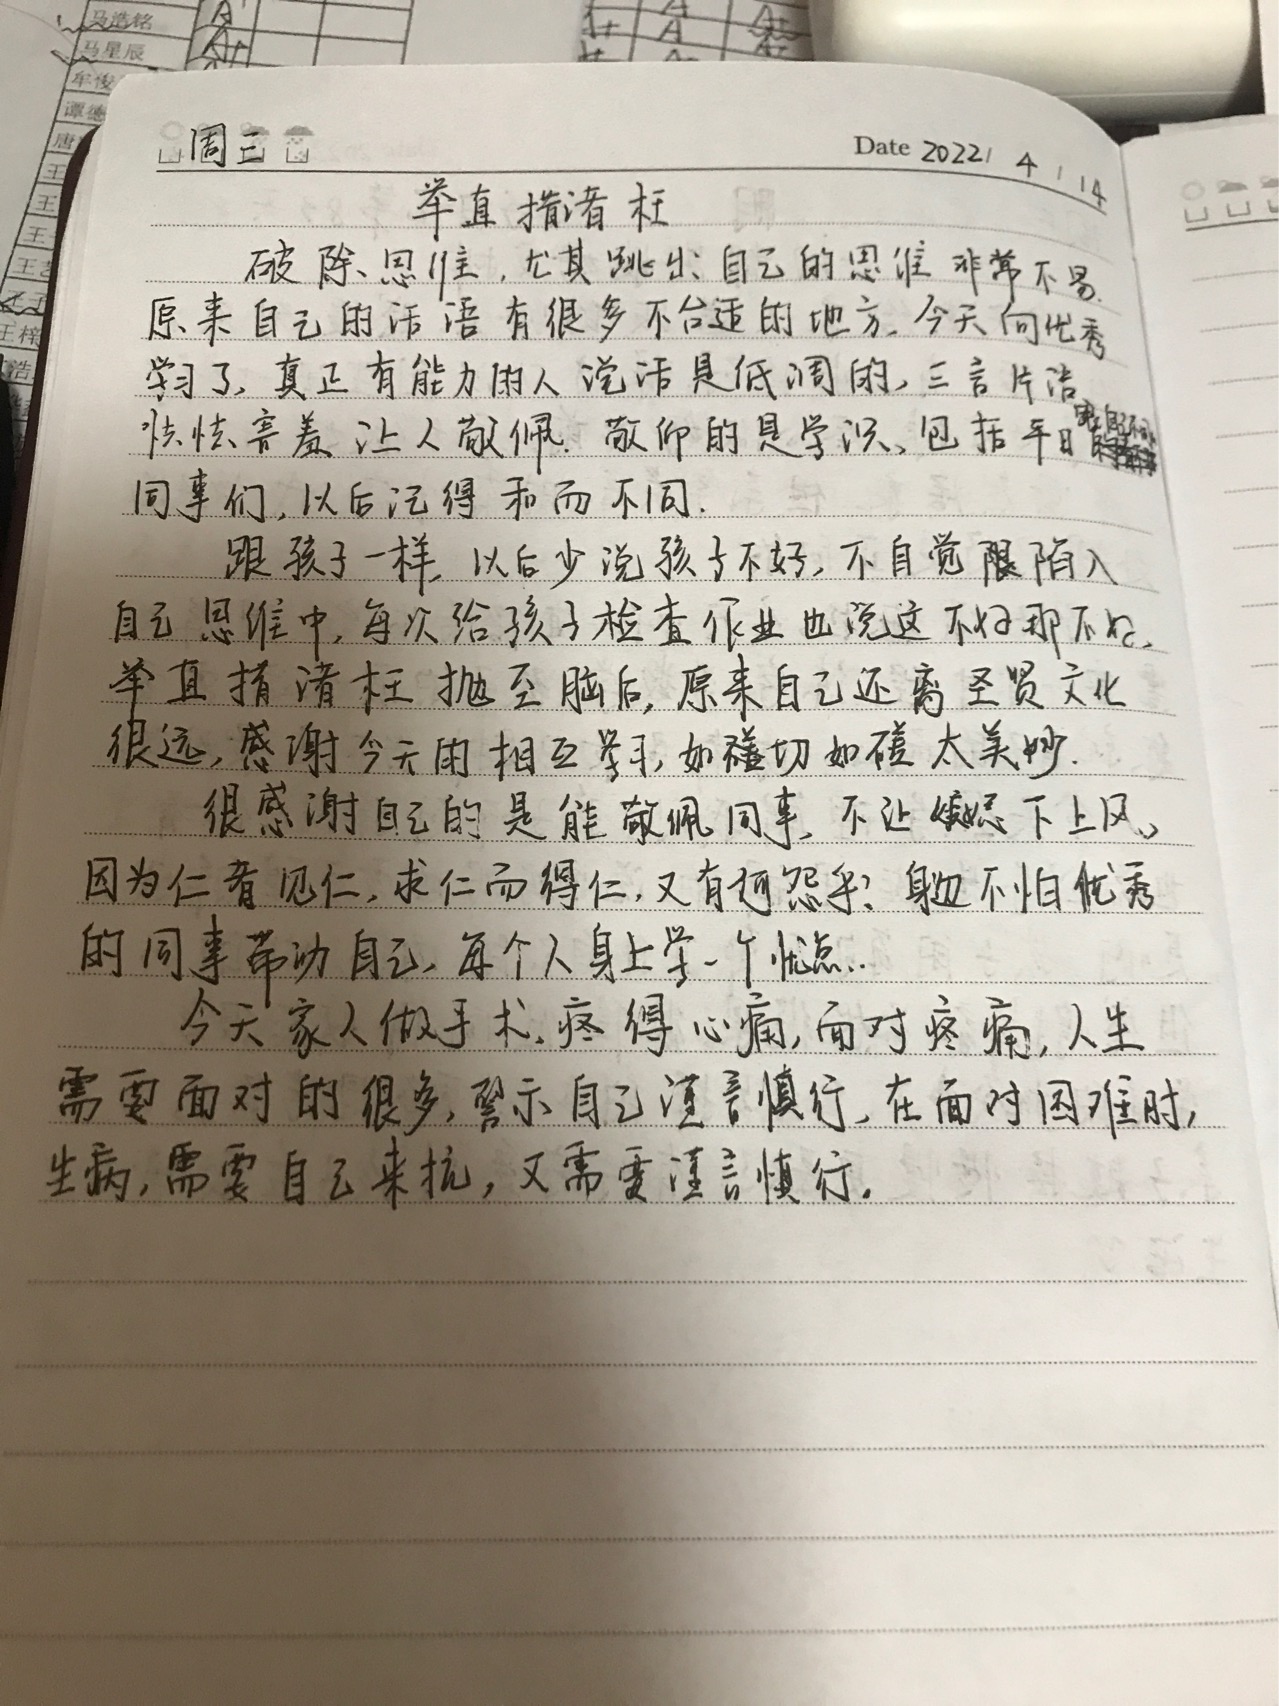 马浩铭
马星辰 A+
周三
Date 2022 / 4 / 14
举直措渚枉
破除思维，尤其跳出自己的思维非常不易.
原来自己的话语有很多不合适的地方.今天向优秀
学习了,真正有能力的人说话是低调的,三言片语
怯怯害羞让人敬佩.敬仰的是学识,包括平日
同事们,以后记得和而不同.
跟孩子一样,以后少说孩子不好,不自觉限陷入
自己思维中,每次给孩子检查作业也说这不好那不好,
举直措渚枉抛至脑后,原来自己还离圣贤文化
很远,感谢今天的相互学习,如磋切如磋太美妙.
很感谢自己的是能敬佩同事,不让嫉妒下上风,
因为仁者见仁,求仁而得仁,又有何怨乎?身边不怕优秀
的同事带动自己,每个人身上学一个优点..
今天家人做手术,疼得心痛,面对疼痛,人生
需要面对的很多,警示自己谨言慎行,在面对困难时,
生病,需要自己来抗,又需要谨言慎行.